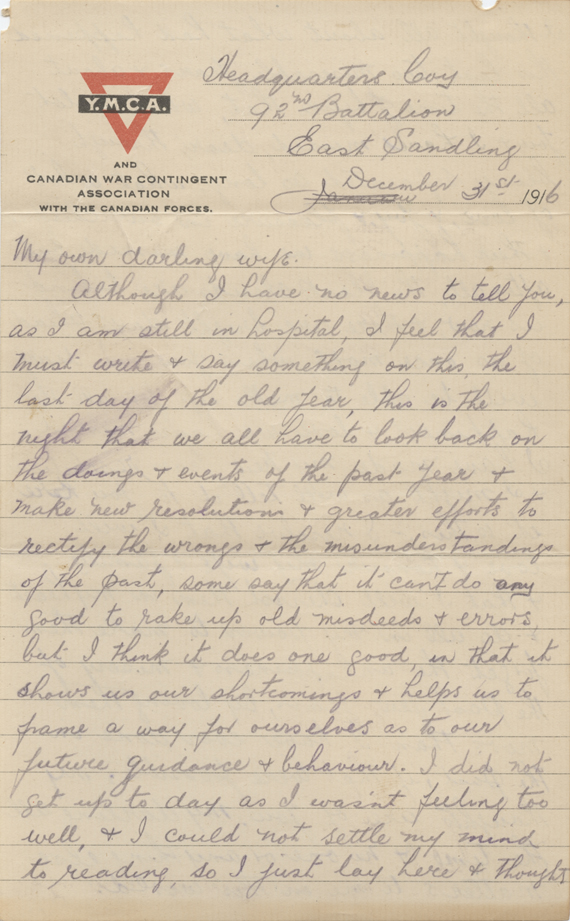 Headquarters Coy
92nd Battalion
East Sandling
December 31st 1916
Y.M.C.A.
AND
CANADIAN WAR CONTINGENT
ASSOCIATION
WITH THE CANADIAN FORCES.
My own darling wife.
Although I have no news to tell you,
as I am still in hospital, I feel that I
must write & say something on this, the
last day of the old year, this is the
night that we all have to look back on
the doings & events of the past year &
make new resolutions & greater efforts to
rectify the wrongs & the misunderstandings
of the past, some say that it can't do any
good to rake up old misdeeds & errors,
but I think it does one good, in that it
shows us our shortcomings & helps us to
frame a way for ourselves as to our
future guidance & behaviour. I did not
get up to day as I wasn't feeling too
well, & I could not settle my mind
to reading, so I just lay here & thought